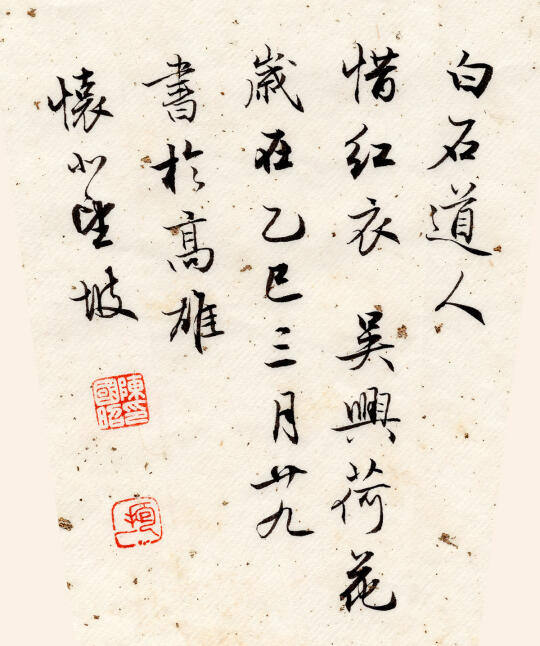 白石道人
惜紅衣 吳興荷花
歲在乙巳三月廿九
書於高雄
懷小望坡
陳國昭印
抱一